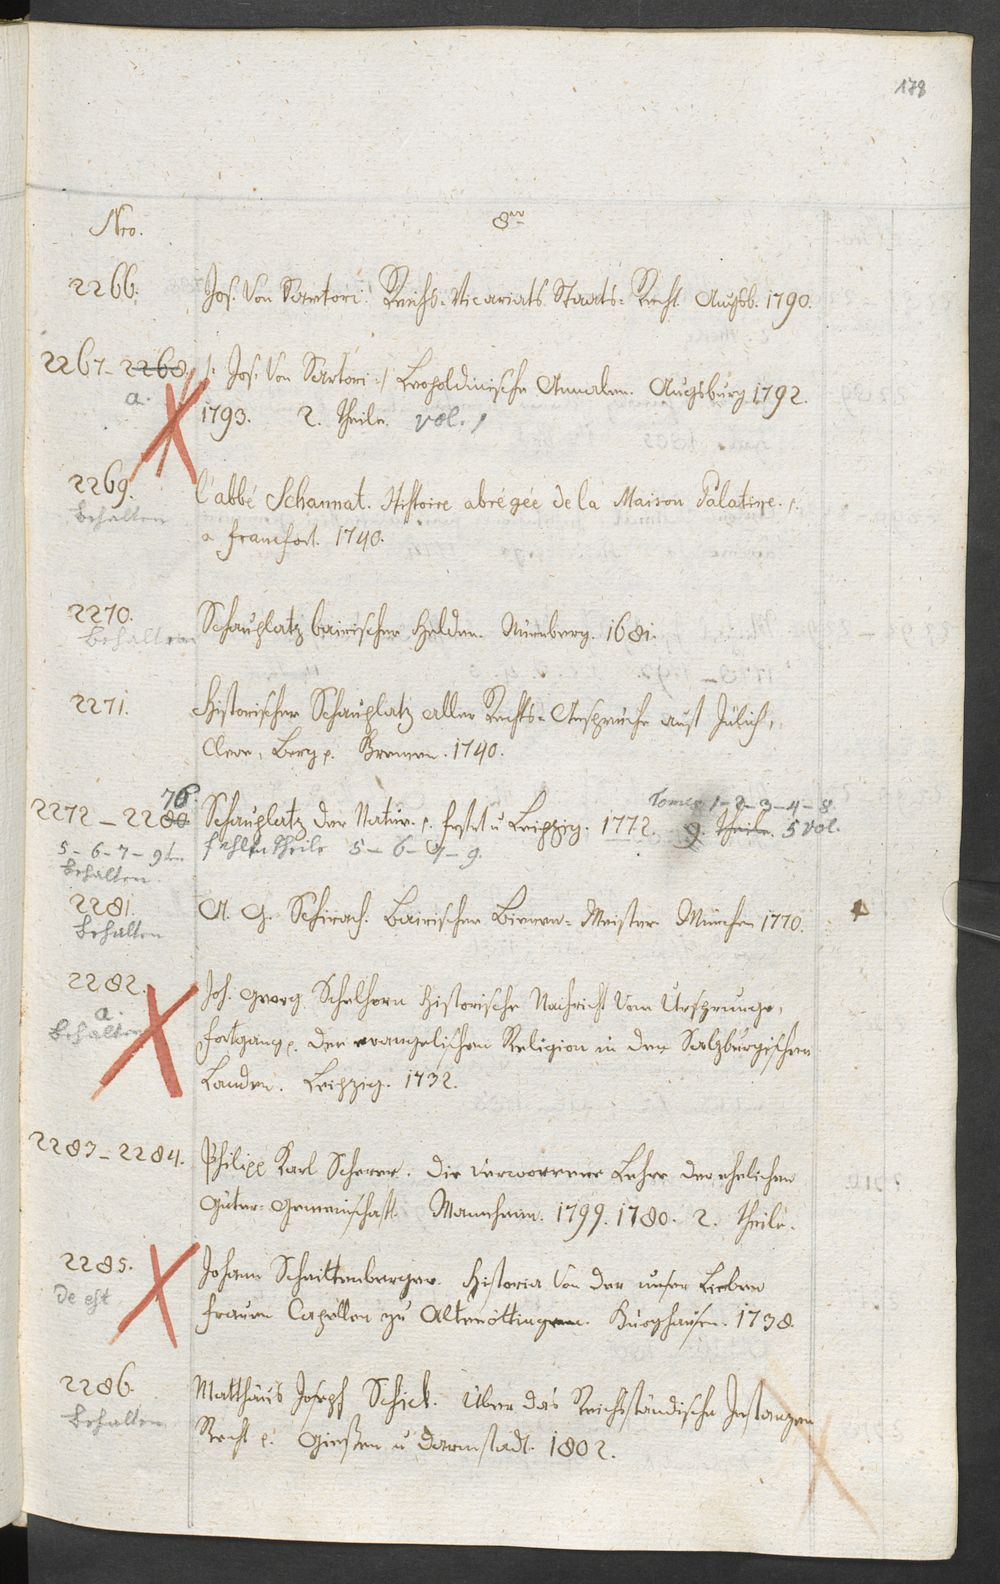 178
Nro. 8vo
2266. Jos. von Sartori. Reichs-Vicariats Staats-Recht. Augsb. 1790.
2267-2268. /: Jos. von Sartori :/ Leopoldinische Annalen. Augsburg 1792.
a. 1793. 2. Theile. vol. 1
2269. l'abbé Schannat. Histoire abrégée de la Maison Palatine. p.
behalten a francfort. 1740.
2270. Schauplatz bairischer Helden. Nürnberg. 1681.
behalten
2271. Historischer Schauplatz aller Rechts-Ansprüche auf Jülich,
Cleve, Berg p. Bremen. 1740.
76 Tomes 1-2-3-4-8
2272-2280 Schauplatz der Natur. p. Frft. u Leipzig. 1772. 9. Theile. 5 vol.
5-6-7-9 t. fehlen Theile 5-6-7-9.
behalten
2281. A. G. Schirach. Bairischer Bienen-Meister. München 1770.
behalten
2282. Joh. Georg Schelhorn Historische Nachricht vom Ursprunge,
a. behalten Fortgang p. der evangelischen Religion in den Salzburgischen
Landen. Leipzig. 1732.
2283-2284. Philipp Karl Scherer. Die verworrene Lehre der ehelichen
Güter-Gemeinschaft. Mannheim. 1799. 1780. 2. Theile.
2285. Johann Schaittenberger. Historia von der unser Lieben
de est Frauen Capellen zu Altenöttingen. Burghausen. 1738.
2286. Matthäus Joseph Schick. Über das Reichsständische Instanzen
behalten Recht p. Gießen u Darmstadt. 1802.